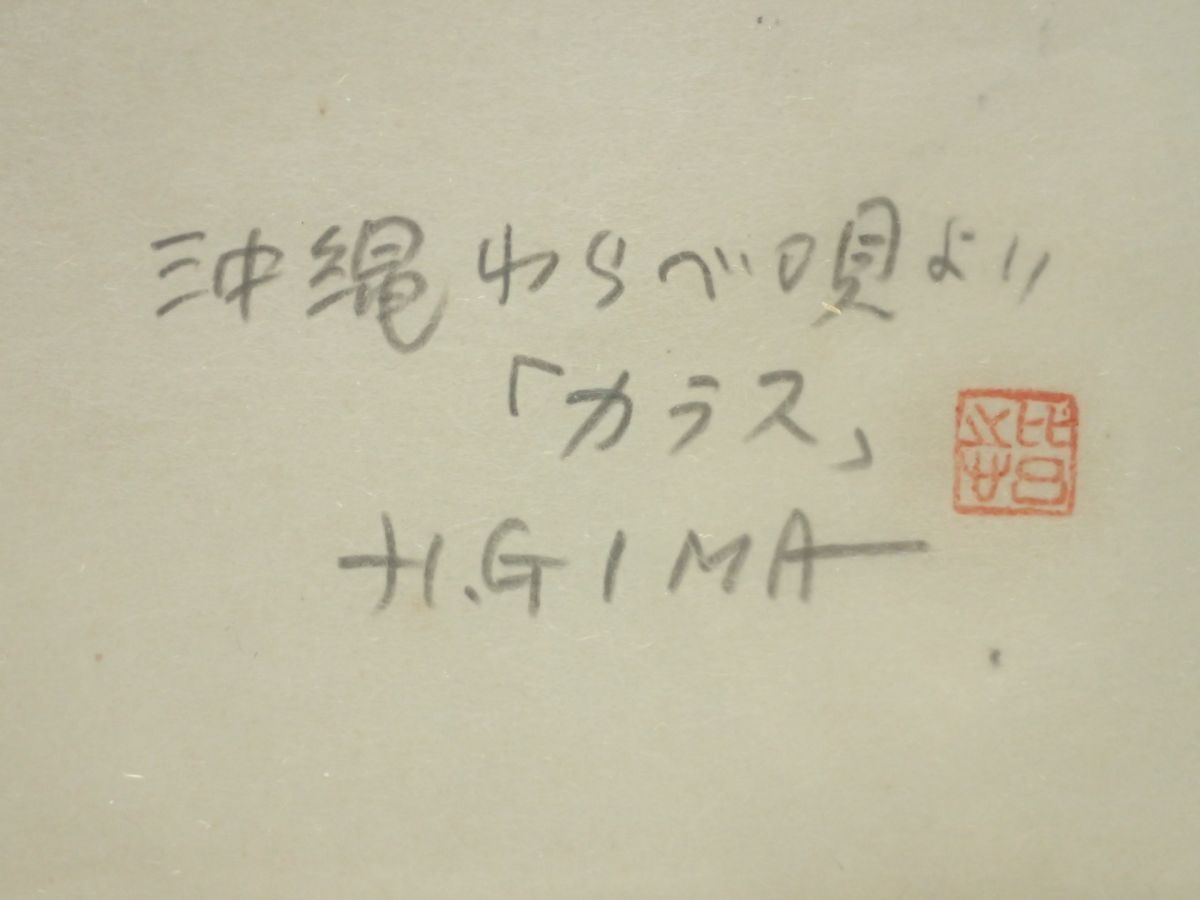 沖縄わらべ唄より
「カラス」
H.GIMA
比呂